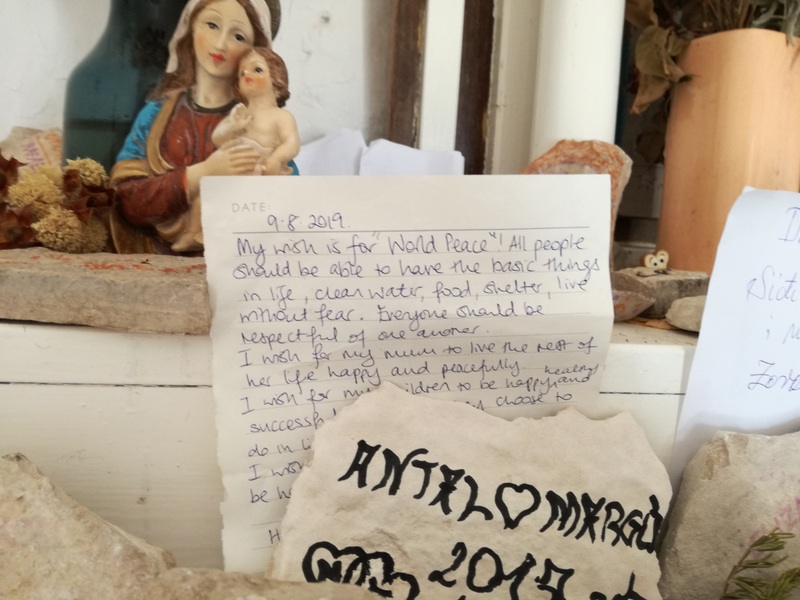 DATE:
9.8.2019.
My wish is for "World Peace"! All people
should be able to have the basic things
in life, clean water, food, shelter, live
without fear. Everyone should be
respectful of one another.
I wish for my mum to live the rest of
her life happy and peacefully
healthy
I wish for my children to be happy and
successf
choose to
do in li
I wish
be h
H
ANTAL♡MARGÓ
2015
Zor